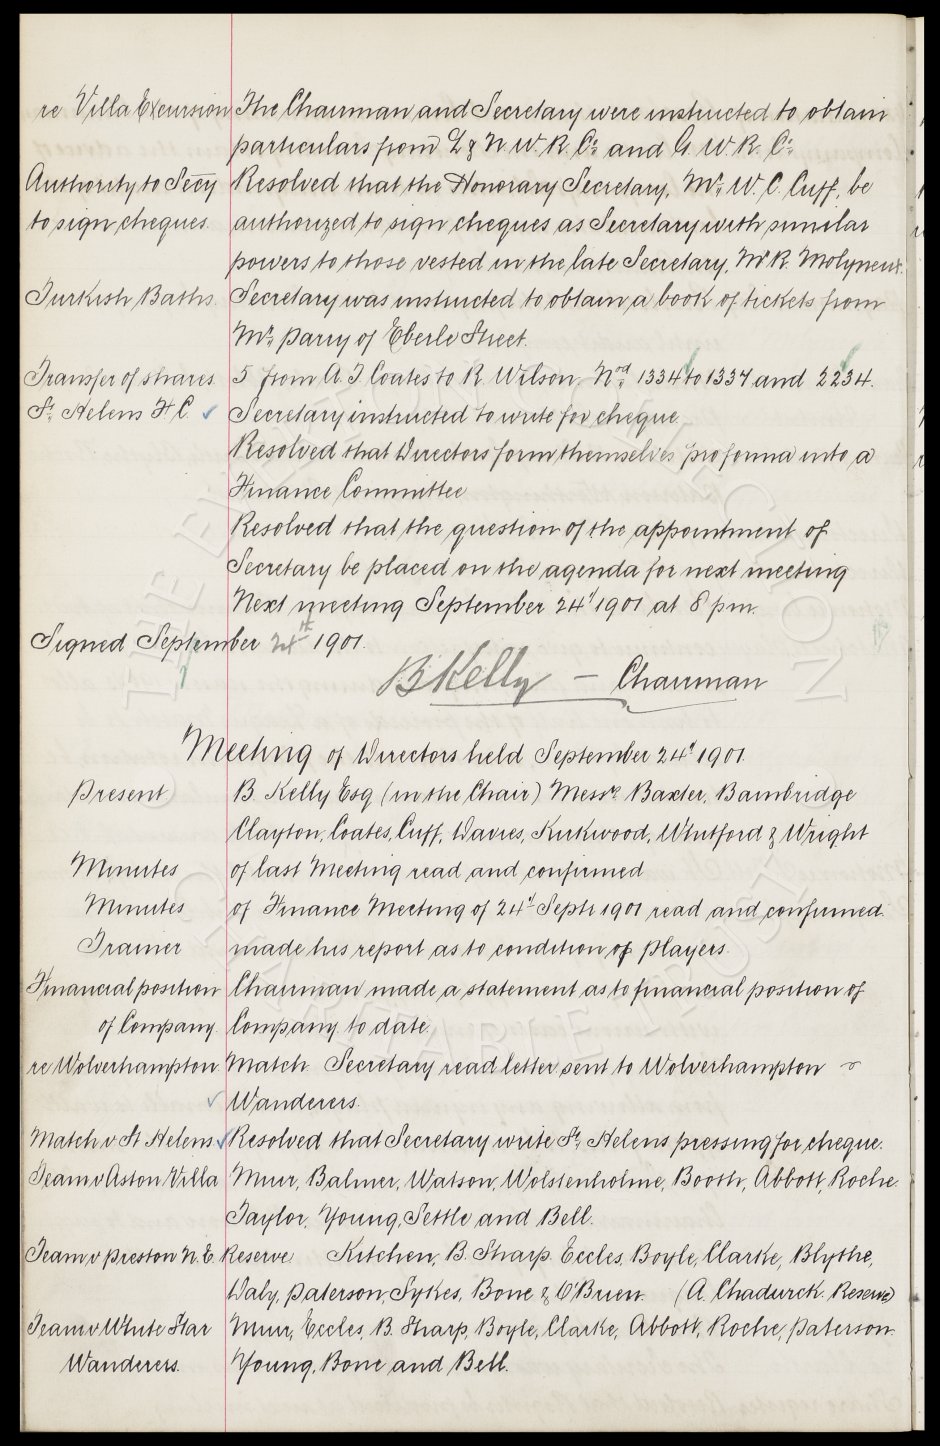 re Villa Excursion The Chairman and Secretary were instructed to obtain
particulars from L & N. W. R. Co. and G. W. R. Co.
Authority to Secy Resolved that the Honorary Secretary, Mr. W. C. Cuff, be
to sign cheques. authorized to sign cheques as Secretary with similar
powers to those vested in the late Secretary, Mr R. Molyneux.
Turkish Baths. Secretary was instructed to obtain a book of tickets from
Mr. Parry of Eberle Street.
Transfer of shares 5 from A. T. Coates to R. Wilson, Nos. 1334 to 1337 and 2234.
St. Helens F.C. ✓ Secretary instructed to write for cheque.
Resolved that Directors form themselves pro forma into a
Finance Committee
Resolved that the question of the appointment of
Secretary be placed on the agenda for next meeting
Next meeting September 24th 1901 at 8 pm.
Signed September 24th 1901.
B Kelly — Chairman
Meeting of Directors held September 24th 1901.
Present B. Kelly Esq (in the Chair) Messrs. Baxter, Bainbridge
Clayton, Coates, Cuff, Davies, Kirkwood, Whitford & Wright
Minutes of last Meeting read and confirmed
Minutes of Finance Meeting of 24th Sept. 1901 read and confirmed.
Trainer made his report as to condition of players.
Financial position Chairman made a statement as to financial position of
of Company. Company to date.
re Wolverhampton Match Secretary read letter sent to Wolverhampton
✓ Wanderers.
Match v St Helens ✓ Resolved that Secretary write St. Helens pressing for cheque.
Team v Aston Villa Muir, Balmer, Watson, Wolstenholme, Booth, Abbott, Roche.
Taylor, Young, Settle and Bell.
Team v Preston N. E. Reserve Kitchen, B. Sharp, Eccles, Boyle, Clarke, Blythe,
Daly, Paterson, Sykes, Bone & O'Brien (A. Chadwick. Reserve)
Team v White Star Muir, Eccles, B. Sharp, Boyle, Clarke, Abbott, Roche, Paterson
Wanderers. Young, Bone and Bell.
THE EVERTON COLLECTION
CHARITABLE TRUST